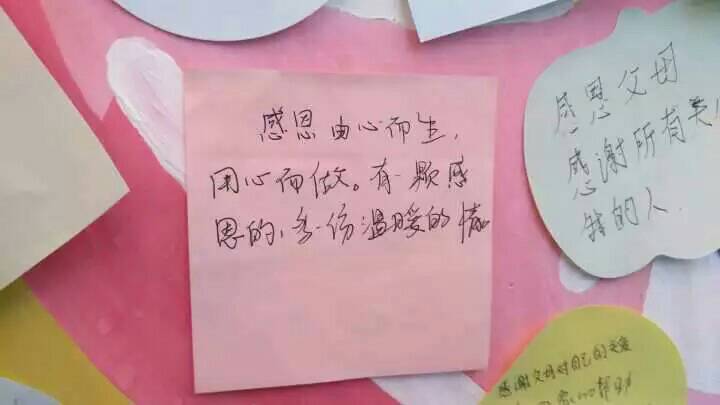 感恩由心而生,
用心而做。有一颗感
恩的心,多一份温暖的情
感恩父母
感谢所有关
我的人.
感谢父母对自己的关爱